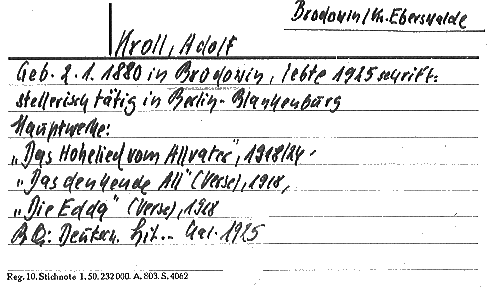 Brodowin/Kr. Eberswalde
Kroll, Adolf
Geb. 2.1.1880 in Brodowin, lebte 1925 schrift-
stellerisch tätig in Berlin-Blankenburg
Hauptwerke:
„Das Hohelied vom Allvater", 1918/24.
„Das denkende All" (Verse), 1918,
„Die Edda" (Verse), 1918
BQ: Deutsch. Lit.- Kal. 1925
Reg. 10. Stichnote 1. 50. 232000. A. 803. S. 4062